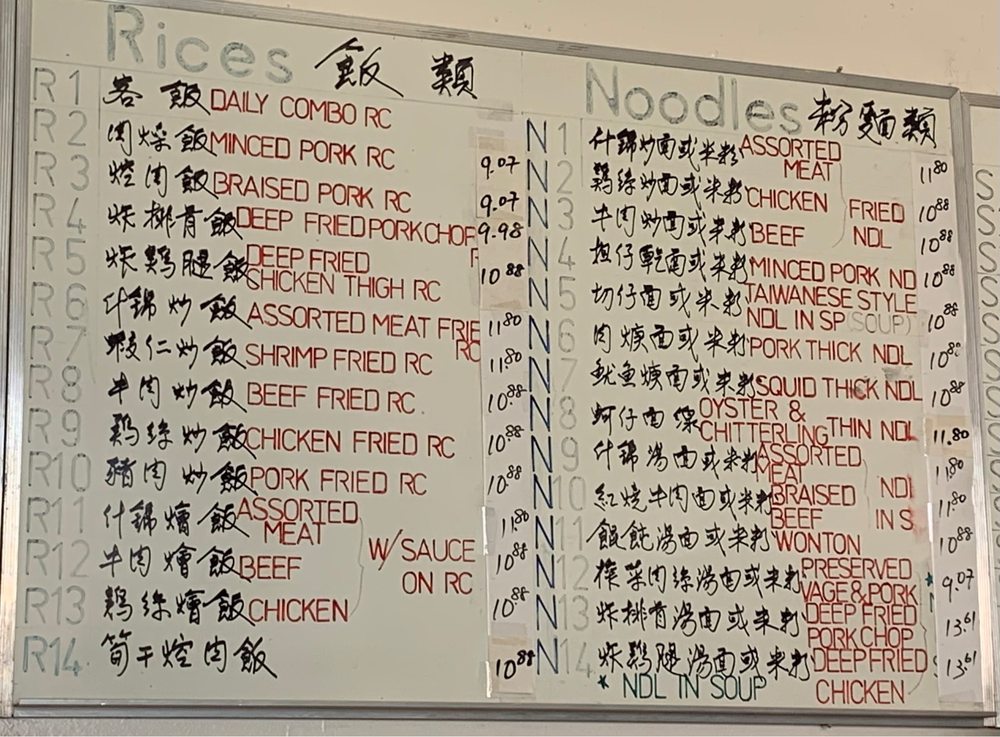 Rices 飯 類
R1 客 飯 DAILY COMBO RC
R2 肉燥飯 MINCED PORK RC 9.07
R3 焢肉飯 BRAISED PORK RC 9.07
R4 炸排骨飯 DEEP FRIED PORK CHOP 9.98
R5 炸鷄腿飯 DEEP FRIED
CHICKEN THIGH RC 10.88
R6 什錦炒飯 ASSORTED MEAT FRIE 11.80
RC
R7 蝦仁炒飯 SHRIMP FRIED RC 11.80
R8 牛肉炒飯 BEEF FRIED RC 10.88
R9 鷄絲炒飯 CHICKEN FRIED RC 10.88
R10 豬肉炒飯 PORK FRIED RC 10.88
R11 什錦燴飯 ASSORTED
MEAT 11.80
R12 牛肉燴飯 BEEF 10.88
R13 鷄絲燴飯 CHICKEN 10.88
W/SAUCE
ON RC
R14 筍干焢肉飯 10.88
Noodles 粉麵類
N1 什錦炒面或米粉 ASSORTED
MEAT 11.80
N2 鷄絲炒面或米粉 CHICKEN 10.88
N3 牛肉炒面或米粉 BEEF 10.88
FRIED
NDL
N4 担仔乾面或米粉 MINCED PORK ND 10.88
N5 切仔面或米粉 TAIWANESE STYLE
NDL IN SP (SOUP) 10.88
N6 肉焿面或米粉 PORK THICK NDL
N7 魷魚焿面或米粉 SQUID THICK NDL 10.88
N8 蚵仔面線 OYSTER &
CHITTERLING THIN NDL 11.80
N9 什錦湯面或米粉 ASSORTED
MEAT 11.80
N10 紅燒牛肉面或米粉 BRAISED
BEEF 11.80
NDL
IN S
N11 餛飩湯面或米粉 WONTON 10.88
N12 榨菜肉絲湯面或米粉 PRESERVED
VAGE & PORK 9.07
N13 炸排骨湯面或米粉 DEEP FRIED
PORK CHOP 13.61
N14 炸鷄腿湯面或米粉 DEEP FRIED
CHICKEN 13.61
* NDL IN SOUP